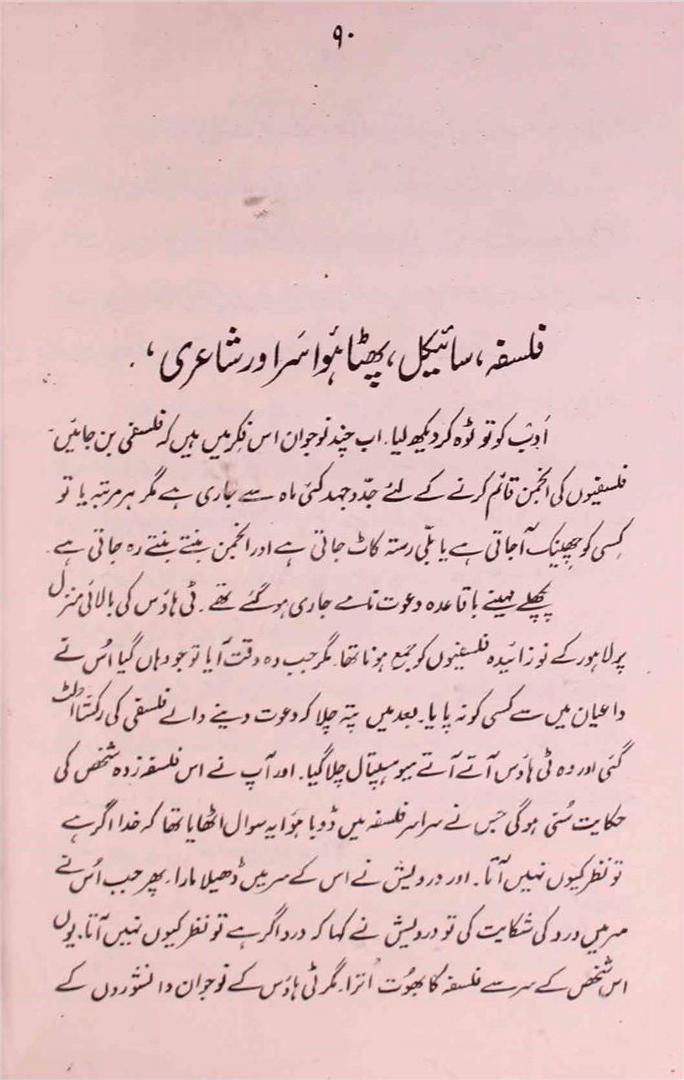 ۹۰
فلسفہ، سائیکل، پھٹا ہُوا سَر اور شاعری،
اَدب کو تو ٹوہ کر دیکھ لیا۔ اب چند نوجوان اس فکر میں ہیں کہ فلسفی بن جائیں۔
فلسفیوں کی انجمن قائم کرنے کے لئے جدّوجہد کئی ماہ سے جاری ہے مگر ہر مرتبہ یا تو
کِسی کو چھینک آ جاتی ہے یا بلّی رستہ کاٹ جاتی ہے اور انجمن بنتے بنتے رہ جاتی ہے۔
پچھلے مہینے باقاعدہ دعوت نامے جاری ہو گئے تھے۔ ٹی ہاؤس کی بالائی منزل
پر لاہور کے نوزائیدہ فلسفیوں کو جمع ہونا تھا۔ مگر جب وہ وقت آیا تو جو وہاں گیا اُس نے
داعیان میں سے کسی کو نہ پایا۔ بعد میں پتہ چلا کہ دعوت دینے والے فلسفی کی رکشا اُلٹ
گئی اور وہ ٹی ہاؤس آتے آتے میو ہسپتال چلا گیا۔ اور آپ نے اس فلسفہ زدہ شخص کی
حکایت سُنی ہوگی جس نے سراسر فلسفہ میں ڈوبا ہُوا یہ سوال اٹھایا تھا کہ خدا اگر ہے
تو نظر کیوں نہیں آتا۔ اور درویش نے اس کے سر میں ڈھیلا مارا۔ پھر جب اُس نے
سر میں درد کی شکایت کی تو درویش نے کہا کہ درد اگر ہے تو نظر کیوں نہیں آتا۔ یوں
اس شخص کے سر سے فلسفہ کا بھُوت اُترا۔ مگر ٹی ہاؤس کے نوجوان دانشوروں کے